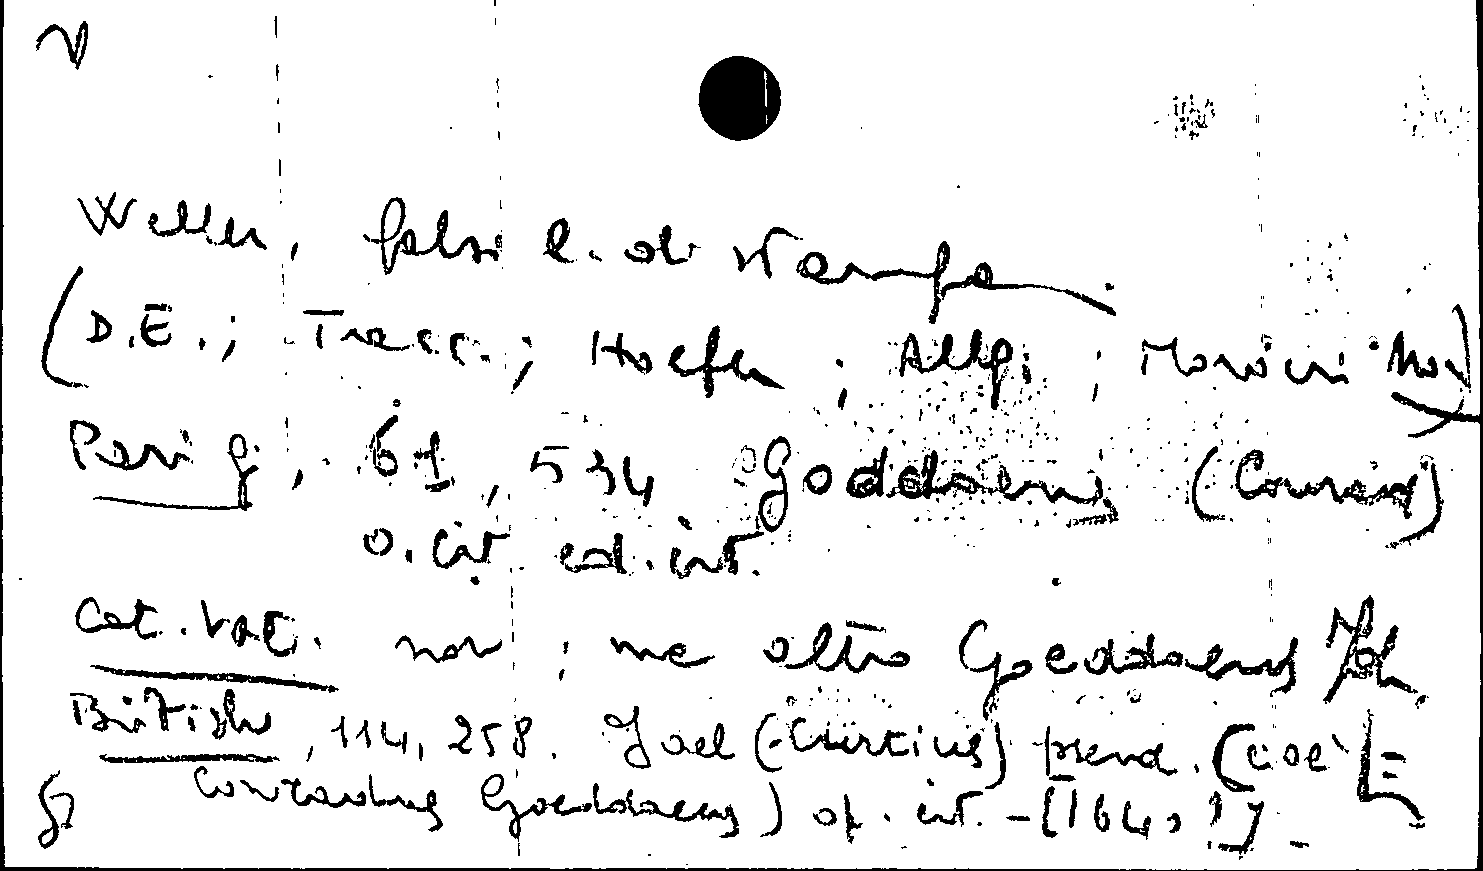 V
Weller, falsi l. di stampa.
(D.E.; Trecc.; Hoefer; Allg.; Morèri Nov)
Parigi, 61, 534 Goddaeus (Conrad)
o. cit. ed. int.
Cat. Vat. non; me altro Goeddaeus Joh.
British, 114, 258. Joel (Curtius) pseud. (cioè
Conradus Goeddaeus) op. int. - [1640?] -